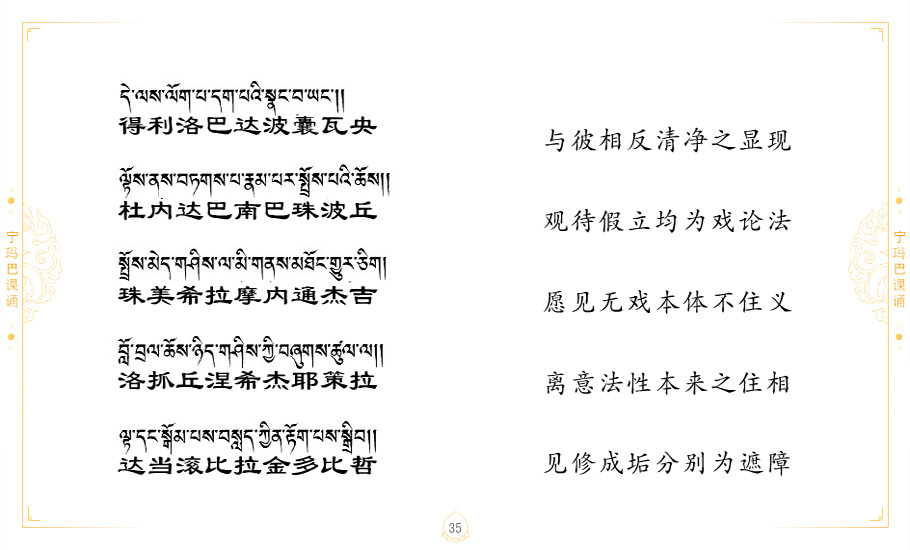 དེ་ལས་ལོག་པ་དག་པའི་སྣང་བ་ཡང་།།
得利洛巴达波囊瓦央
与彼相反清净之显现
ལྟོས་ནས་བཏགས་པ་རྣམ་པར་སྤྲོས་པའི་ཆོས།།
杜内达巴南巴珠波丘
观待假立均为戏论法
སྤྲོས་མེད་གཤིས་ལ་མི་གནས་མཐོང་གྱུར་ཅིག།
珠美希拉摩内通杰吉
愿见无戏本体不住义
བློ་བྲལ་ཆོས་ཉིད་གཤིས་ཀྱི་བཞུགས་ཚུལ་ལ།།
洛抓丘涅希杰耶策拉
离意法性本来之住相
ལྟ་དང་སྒོམ་པས་བསླད་ཀྱིན་རྟོག་པས་སྒྲིབ།།
达当滚比拉金多比哲
见修成垢分别为遮障
宁玛巴课诵
宁玛巴课诵
35